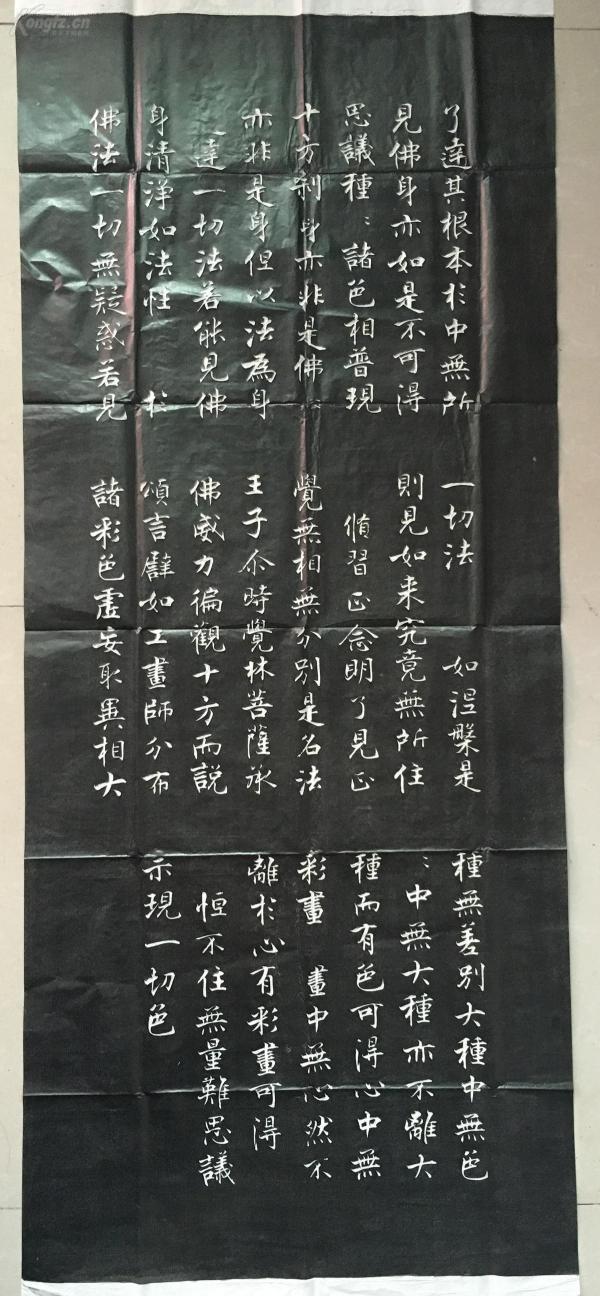 了達其根本於中無所
見佛身亦如是不可得
思議種〻諸色相普現
十方刹身亦非是佛〻
亦非是身但以法為身
達一切法若能見佛
身清淨如法性 於
佛法一切無疑惑若見
一切法 如涅槃是
則見如来究竟無所住
脩習正念明了見正
覺無相無分別是名法
王子尒時覺林菩薩承
佛威力徧觀十方而説
頌言譬如工畫師分布
諸彩色虛妄取異相大
種無差別大種中無色
〻中無大種亦不離大
種而有色可得心中無
彩畫 畫中無心然不
離於心有彩畫可得
恒不住無量難思議
示現一切色
Kongfz.cn